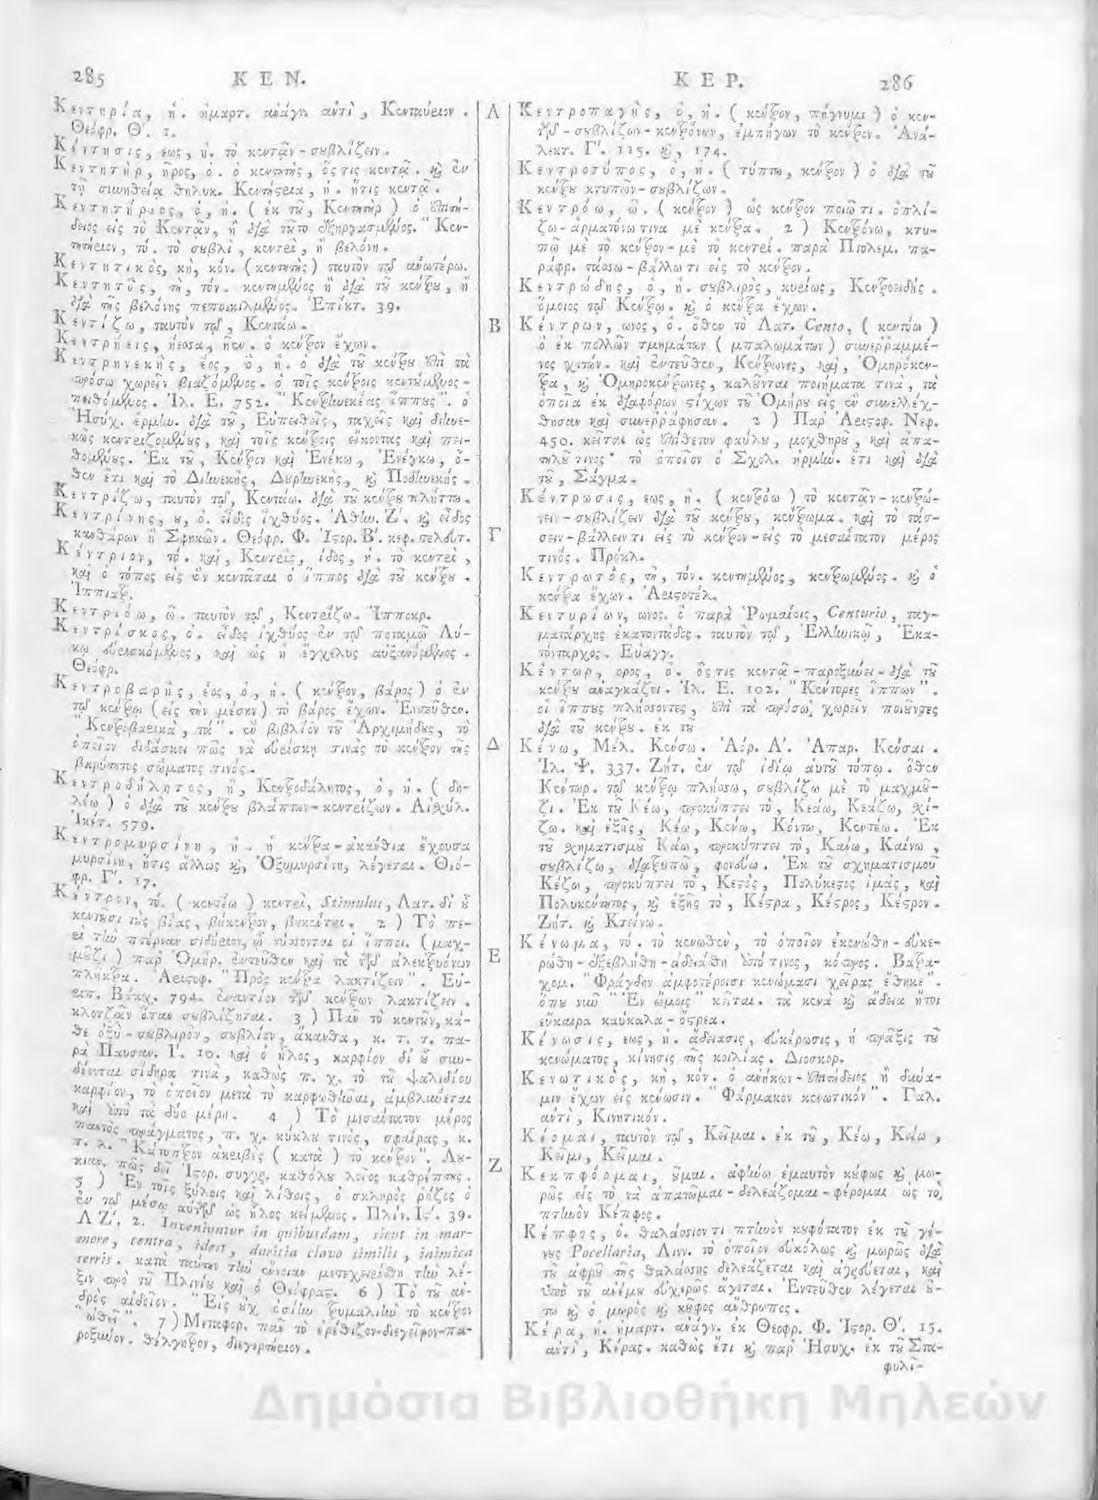 285 ΚΕΝ.
Κεντηρία, ἡ. ἡμαρτ. ἀνάγν. ἀντὶ, Κενταύειον.
Θεόφρ. Θ'. 1.
Κέντησις, εως, ἡ. τὸ κεντᾶν-σουβλίζειν.
Κεντητὴρ, ῆρος, ὁ. ὁ κεντητὴς, ὅςτις κεντᾷ. καὶ ἐν
τῇ συνηθείᾳ θηλυκ. Κεντήςεια, ἡ. ἥτις κεντᾷ.
Κεντητήριος, ὁ, ἡ. (ἐκ τοῦ, Κεντητὴρ) ὁ ἐπιτή-
δειος εἰς τὸ Κεντᾶν, ἢ διὰ τοῦτο ἐξηργασμένος. "Κεν-
τητήριον, τό. τὸ σουβλὶ, κεντρὶ, ἢ βελόνη.
Κεντητικὸς, κὴ, κόν. (κεντητὴς) ταυτὸν τῷ ἀνωτέρω.
Κεντητὸς, τὴ, τόν. κεντημένος ἢ διὰ τοῦ κέντρου, ἢ
διὰ τῆς βελόνης πεποικιλμένος. Ἐπίκτ. 39.
Κεντίζω, ταυτὸν τῷ, Κεντάω.
Κεντρήεις, ήεσσα, ῆεν. ὁ κέντρον ἔχων.
Κεντρηνεκὴς, έος, ὁ, ἡ. ὁ διὰ τοῦ κέντρου ἐπὶ τὰ
πρόσω χωρεῖν βιαζόμενος. ὁ τοῖς κέντροις κεντούμενος-
πειθόμενος. Ἰλ. Ε. 752. "Κεντρηνεκέας ἵππους". ὁ
Ἡσύχ. ἑρμην. διὰ τοῦ, Εὐπειθεῖς, ταχεῖς καὶ διηνε-
κῶς κεντριζομένους, καὶ τοῖς κέντροις εἴκοντας καὶ πει-
θομένους. Ἐκ τοῦ, Κέντρον καὶ Ἐνέκω, Ἐνέγκω, ὅ-
θεν ἔτι καὶ τὸ Διηνεκὴς, Δουρηνεκὴς, καὶ Ποδηνεκής.
Κεντρίζω, ταυτὸν τῷ, Κεντάω. διὰ τοῦ κέντρου πλήττω.
Κεντρίνης, ου, ὁ. εἶδος ἰχθύος. Ἀθήν. Ζ'. καὶ εἶδος
κανθάρων ἢ Σφηκῶν. Θεόφρ. Φ. Ἱστορ. Β'. κεφ. τελευτ.
Κέντριον, τό. καὶ, Κεντρὶς, ίδος, ἡ. τὸ κεντρὶ,
καὶ ὁ τόπος εἰς ὃν κεντᾶται ὁ ἵππος διὰ τοῦ κέντρου.
Ἱππιατρ.
Κεντριόω, ῶ. ταυτὸν τῷ, Κεντρίζω. Ἱπποκρ.
Κεντρίσκος, ὁ. εἶδος ἰχθύος ἐν τῷ ποταμῷ Λύ-
κῳ εὑρισκόμενος, καὶ ὡς ἡ ἔγχελυς αὐξανόμενος.
Θεόφρ.
Κεντροβαρὴς, έος, ὁ, ἡ. (κέντρον, βάρος) ὁ ἐν
τῷ κέντρῳ (εἰς τὴν μέσην) τὸ βάρος ἔχων. Ἐντεῦθεν.
"Κεντροβαρικὰ, τὰ". ἐν βιβλίον τοῦ Ἀρχιμήδους, τὸ
ὁποῖον διδάσκει πῶς νὰ εὑρίσκῃ τινὰς τὸ κέντρον τῆς
βαρύτητος σώματος τινός.
Κεντροδήλητος, ἢ, Κεντροδάλητος, ὁ, ἡ. (δη-
λέω) ὁ διὰ τοῦ κέντρου βλάπτων-κεντρίζων. Αἰσχύλ.
Ἱκέτ. 579.
Κεντρομυρσίνη, ἡ. ἡ κέντρα-ἀκάνθια ἔχουσα
μυρσίνη, ἥτις ἄλλως καὶ, Ὀξυμυρσίνη, λέγεται. Θεό-
φρ. Γ'. 17.
Κέντρον, τό. (κεντέω) κεντρὶ, Stimulus, Λατ. δι' οὗ
κεντῶσι τοὺς βόας, βούκεντρον, βουκέντρι. 2) Τὸ πε-
ρὶ τὴν πτέρναν σιδήριον, ᾧ νύσσονται οἱ ἵπποι. (μαχ-
μούζι) παρ' Ὁμήρ. ἐντεῦθεν καὶ τὰ τῶν ἀλεκτρυόνων
πλῆκτρα. Ἀριστοφ. "Πρὸς κέντρα λακτίζειν". Εὐ-
ριπ. Βάκχ. 794. ἐναντίον τῶν κέντρων λακτίζειν.
κλοτζᾶν ὅταν σουβλίζηται. 3) Πᾶν τὸ κεντοῦν, κά-
θε ὀξὺ-σουβλιρὸν, σουβλίον, ἄκανθα, κ. τ. τ. πα-
ρὰ Παυσαν. Ι'. 10. καὶ ὁ ἧλος, καρφίον δι' οὗ συν-
δέονται σίδηρα τινὰ, καθὼς π. χ. τὸ τοῦ ψαλιδίου
καρφίον, τὸ ὁποῖον μετὰ τὸ καρφωθῆναι, ἀμβλύνεται
καὶ ἀπὸ τὰ δύο μέρη. 4) Τὸ μεσαίτατον μέρος
παντὸς πράγματος, π. χ. κύκλου τινὸς, σφαίρας, κ.
τ. λ. "Κάτοπτρον ἀκριβὲς (κατὰ) τὸ κέντρον". Λου-
κιαν. πῶς δεῖ Ἱστορ. συγγρ. καθόλου λεῖος καθρέπτης.
5) Ἐν τοῖς ξύλοις καὶ λίθοις, ὁ σκληρὸς ῥόζος ὁ
ἐν τῷ μέσῳ αὐτῶν ὡς ἧλος κείμενος. Πλίν. Ις'. 39.
ΛΖ'. 2. Inveniuntur in quibusdam, sicut in mar-
more, centra, idest, duritia clavo similis, inimica
serris. κατὰ ταύτην τὴν ἔννοιαν μετεχειρίσθη τὴν λέ-
ξιν πρὸ τοῦ Πλινίου καὶ ὁ Θεόφραστ. 6) Τὸ τοῦ ἀν-
δρὸς αἰδοῖον. "Εἰς οὐχ ὁσίην τρυμαλιὴν τὸ κέντρον
ὠθεῖ". 7) Μεταφορ. πᾶν τὸ ἐρεθίζον-διεγεῖρον-πα-
ροξύνον. θέλγητρον, διεγερτήριον.
Α
Β
Γ
Δ
Ε
Ζ
ΚΕΡ. 286
Κεντροπαγὴς, ὁ, ἡ. (κέντρον, πήγνυμι) ὁ κεν-
τῶν-σουβλίζων-κεντρόνων, ἐμπήγων τὸ κέντρον. Ἀνά-
λεκτ. Γ'. 115. καὶ, 174.
Κεντροτύπος, ὁ, ἡ. (τύπτω, κέντρον) ὁ διὰ τοῦ
κέντρου κτυπῶν-σουβλίζων.
Κεντρόω, ῶ. (κέντρον) ὡς κέντρον ποιῶ τι. ὁπλί-
ζω-ἀρματόνω τινα μὲ κέντρα. 2) Κεντρόνω, κτυ-
πῶ μὲ τὸ κέντρον-μὲ τὸ κεντρί. παρὰ Πτολεμ. πα-
ράφρ. τάσσω-βάλλω τι εἰς τὸ κέντρον.
Κεντρώδης, ὁ, ἡ. σουβλιρὸς, κυρίως, Κεντροειδής.
ὅμοιος τῷ Κέντρῳ. καὶ ὁ κέντρα ἔχων.
Κέντρων, ωνος, ὁ. ὅθεν τὸ Λατ. Cento, (κεντόω)
ὁ ἐκ πολλῶν τμημάτων (μπαλωμάτων) συνερραμμέ-
νος χιτών. καὶ ἐντεῦθεν, Κέντρωνες, καὶ, Ὁμηρόκεν-
τρα, καὶ Ὁμηροκέντρωνες, καλοῦνται ποιήματα τινὰ, τὰ
ὁποῖα ἐκ διαφόρων στίχων τοῦ Ὁμήρου εἰς ἓν συνελλέχ-
θησαν καὶ συνερράφησαν. 2) Παρ' Ἀριστοφ. Νεφ.
450. κεῖται ὡς ἐπίθετον φαύλου, μοχθηροῦ, καὶ ἀπα-
τηλοῦ τινος· τὸ ὁποῖον ὁ Σχολ. ἡρμήν. ἔτι καὶ διὰ
τοῦ, Σάγμα.
Κέντρωσις, εως, ἡ. (κεντρόω) τὸ κεντᾶν-κεντρώ-
νειν-σουβλίζειν διὰ τοῦ κέντρου, κέντρωμα. καὶ τὸ τάσ-
σειν-βάλλειν τι εἰς τὸ κέντρον-εἰς τὸ μεσαίτατον μέρος
τινός. Πρόκλ.
Κεντρωτὸς, τὴ, τόν. κεντημένος, κεντρωμένος. καὶ ὁ
κέντρα ἔχων. Ἀριστοτέλ.
Κεντυρίων, ωνος. ὁ παρὰ Ῥωμαίοις, Centurio, ταγ-
ματάρχης ἑκατοντάδος. ταυτὸν τῷ, Ἑλληνικῷ, Ἑκα-
τόνταρχος. Εὐαγγ.
Κέντωρ, ορος, ὁ. ὅςτις κεντᾷ-παροξύνει-διὰ τοῦ
κέντρου ἀναγκάζει. Ἰλ. Ε. 102. "Κέντορες ἵππων".
οἱ ἵππους πλήσσοντες, ἐπὶ τὰ πρόσω χωρεῖν ποιοῦντες
διὰ τοῦ κέντρου. ἐκ τοῦ
Κένω, Μέλ. Κένσω. Ἀόρ. Α'. Ἀπαρ. Κένσαι.
Ἰλ. Ψ. 337. Ζήτ. ἐν τῷ ἰδίῳ αὐτοῦ τόπῳ. ὅθεν
Κέντωρ. τῷ κέντρῳ πλήσσω, σουβλίζω μὲ τὸ μαχμού-
ζι. Ἐκ τοῦ Κέω, προκύπτει τὸ, Κεάω, Κεάζω, σχί-
ζω. καὶ ἑξῆς, Κέω, Κένω, Κέντω, Κεντέω. Ἐκ
τοῦ σχηματισμοῦ Κάω, προκύπτει τὸ, Κάνω, Καίνω,
σουβλίζω, διατρυπῶ, φονεύω. Ἐκ τοῦ σχηματισμοῦ
Κέζω, προκύπτει τὸ, Κεστὸς, Πολύκεστος ἱμὰς, καὶ
Πολυκέντητος, καὶ ἑξῆς τὸ, Κέστρα, Κέστρος, Κέστρον.
Ζήτ. καὶ Κτείνω.
Κένωμα, τό. τὸ κενωθὲν, τὸ ὁποῖον ἐκενώθη-εὐκε-
ρώθη-ἐξεβλήθη-ἀδειάθη ἀπό τινος, κόπρος. Βατρα-
χομ. "Φράγδην ἀμφοτέροισι κενώμασι χεῖρας ἔθηκε".
ὅπου νῦν "Ἐν ὤμοις" κεῖται. τὰ κενὰ καὶ ἄδεια ἤτοι
εὔκαιρα καύκαλα-ὄστρεα.
Κένωσις, εως, ἡ. ἀδείασις, εὐκέρωσις, ἡ πρᾶξις τοῦ
κενώματος, κίνησις τῆς κοιλίας. Διοσκορ.
Κενωτικὸς, κὴ, κόν. ὁ ἀνήκων-ἐπιτήδειος ἢ δύνα-
μιν ἔχων εἰς κένωσιν. "Φάρμακον κενωτικόν". Γαλ.
ἀντὶ, Κινητικόν.
Κέομαι, ταυτὸν τῷ, Κεῖμαι. ἐκ τοῦ, Κέω, Κείω,
Κεῖμι, Κεῖμαι.
Κεπφόομαι, οῦμαι. ἀφίνω ἐμαυτὸν κούφως καὶ μω-
ρῶς εἰς τὸ νὰ ἀπατῶμαι-δελεάζομαι-φέρομαι ὡς τὸ
πτηνὸν Κέπφος.
Κέπφος, ὁ. θαλάσσιόν τι πτηνὸν κουφότατον ἐκ τοῦ γέ-
νους Pocellaria, Λινν. τὸ ὁποῖον εὐκόλως καὶ μωρῶς διὰ
τοῦ ἀφροῦ τῆς θαλάσσης δελεάζεται καὶ ἀγρεύεται, καὶ
ὑπὸ τοῦ ἀνέμου εὐχερῶς ἄγεται. Ἐντεῦθεν λέγεται οὕ-
τω καὶ ὁ μωρὸς καὶ κοῦφος ἄνθρωπος.
Κέρα, ἡ. ἡμαρτ. ἀνάγν. ἐκ Θεοφρ. Φ. Ἱστορ. Θ'. 15.
ἀντὶ, Κέρας. καθὼς ἔτι καὶ παρ' Ἡσυχ. ἐκ τοῦ Στα-
φυλῖ-
Δημόσια Βιβλιοθήκη Μηλεών